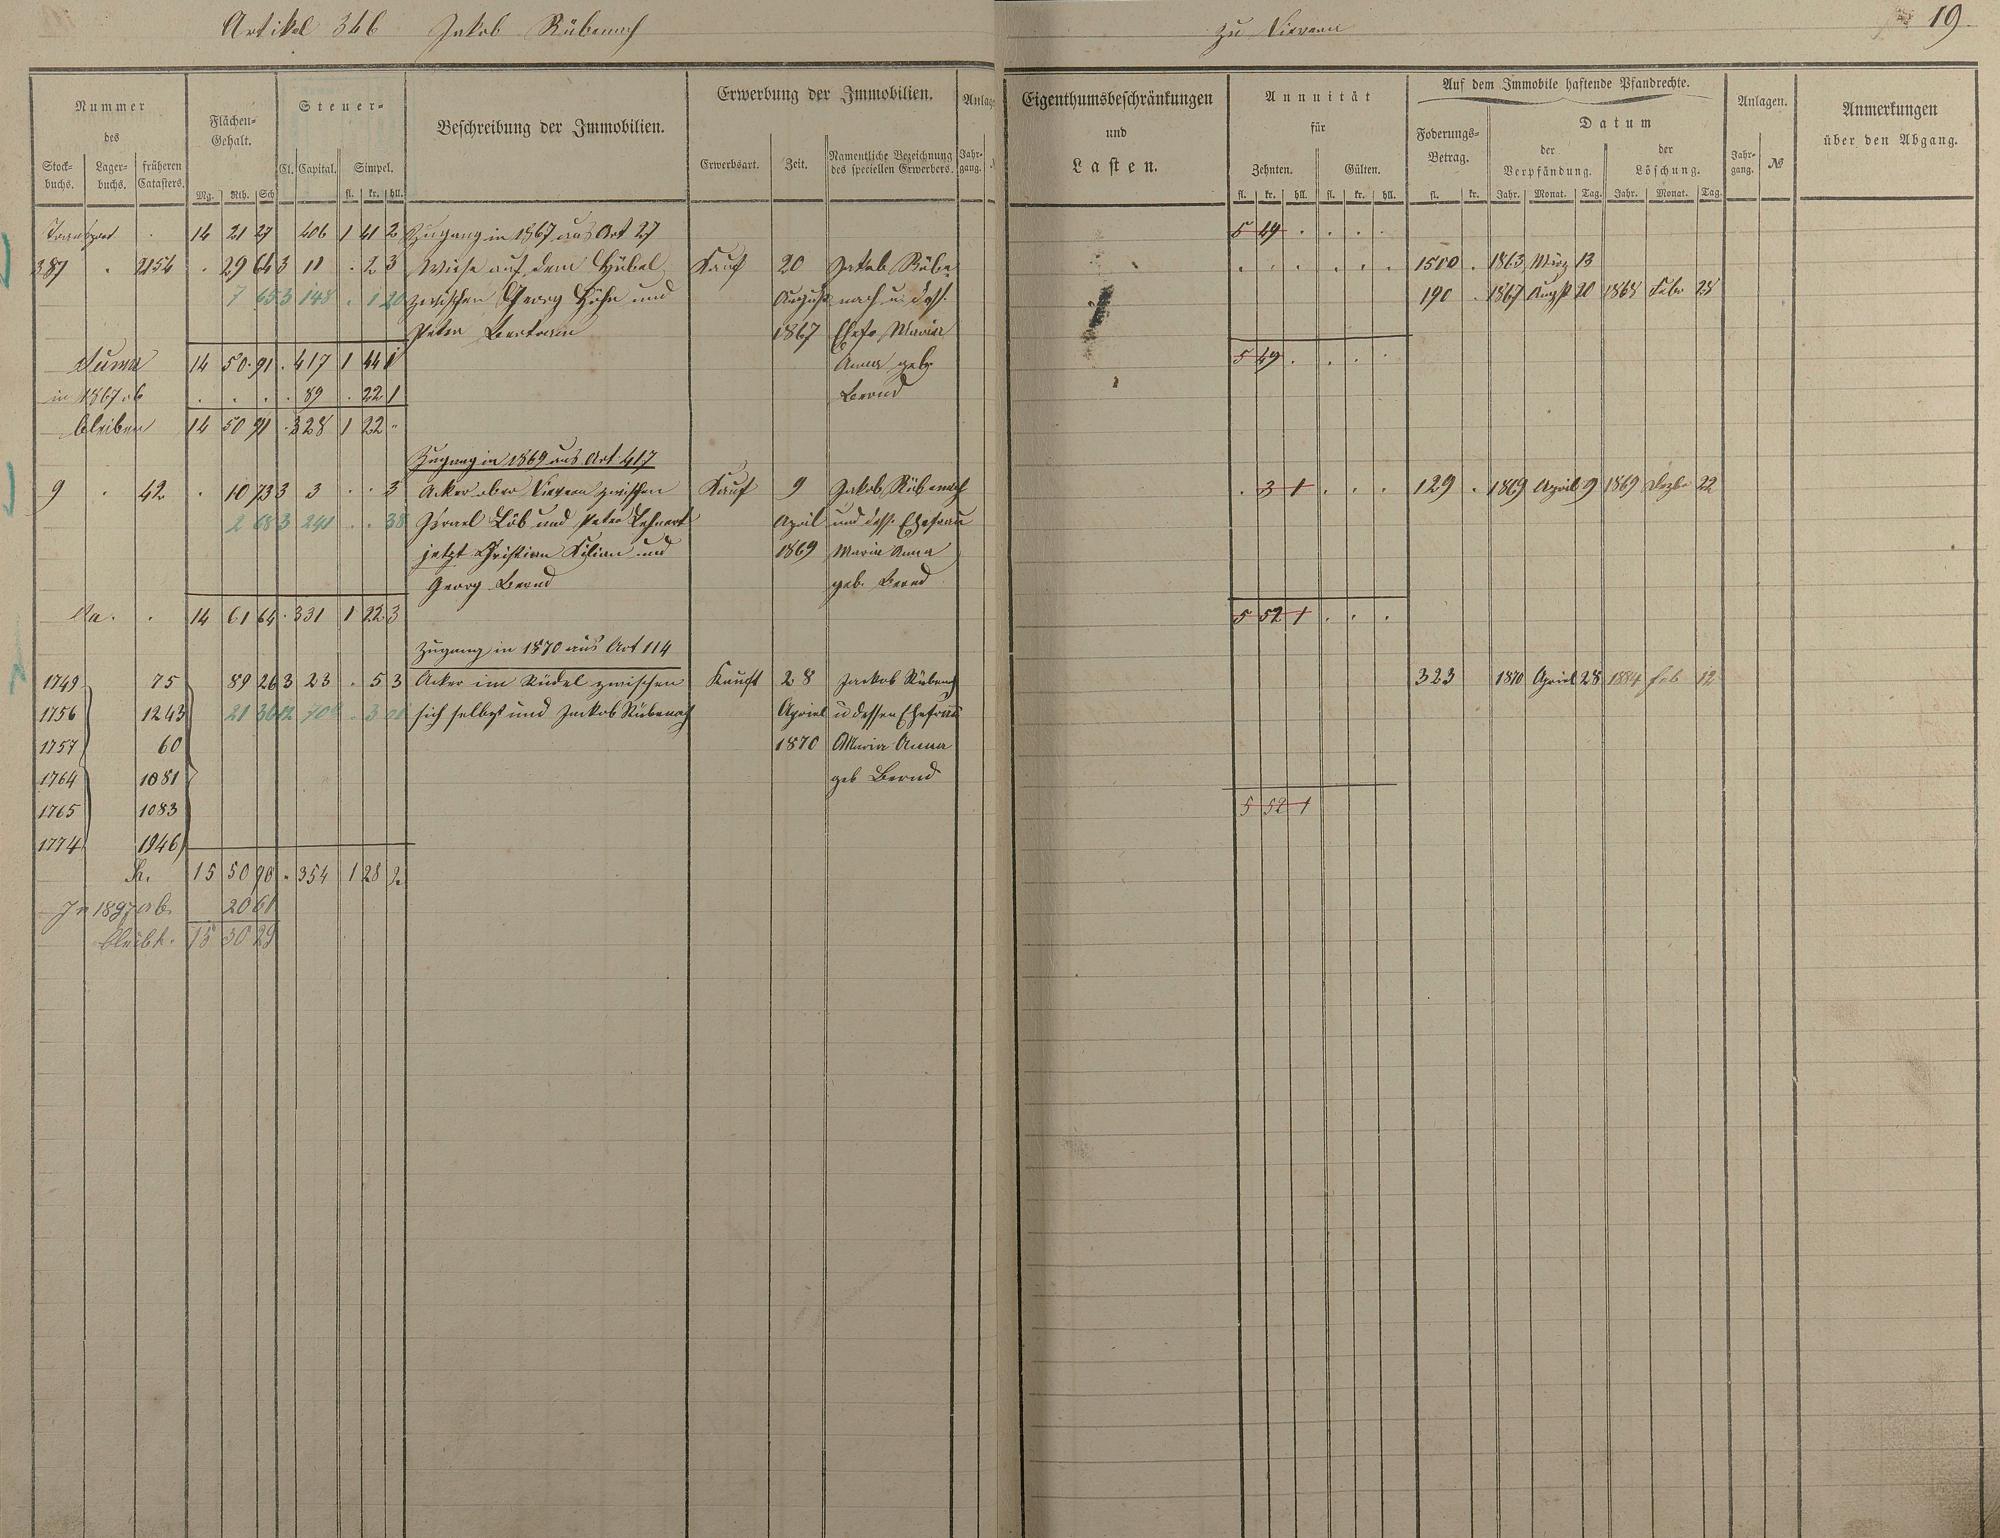 Artikel 346 Jakob Rübenach
zu Nievern
19.
Nummer
des
Stock-buchs. Lager-buchs. früheren Catasters.
Flächen-Gehalt.
Mg. Rth. Sch
Steuer-
Cl. Capital. Simpel.
fl. kr. hll.
Beschreibung der Immobilien.
Erwerbung der Immobilien.
Erwerbsart. Zeit. Namentliche Bezeichnung des speciellen Erwerbers.
Anlag
Jahr-gang.
Eigenthumsbeschränkungen
und
Lasten.
Annuität
für
Zehnten. Gülten.
fl. kr. hll. fl. kr. hll.
Auf dem Immobile haftende Pfandrechte.
Foderungs-Betrag.
fl. kr.
Datum
der Verpfändung. der Löschung.
Jahr. Monat. Tag. Jahr. Monat. Tag.
Anlagen.
Jahr-gang. №
Anmerkungen
über den Abgang.
Transport . 14 21 27 406 1 41 2 Zugang in 1867 aus Art 27 5 49 . . . .
387 . 2154 . 29 64 3 11 . 2 3 Wiese auf dem Hübel Kauf 20 Jakob Rübe- . . . . . . 1500 . 1863 März 13
7 65 3 148 . 1 20 zwischen Georg Höhn und August nach u. dess. 190 . 1867 Augst 20 1868 Febr 28
Peter Bertram 1867 Ehefr. Maria
Suma 14 50 91 . 417 1 44 1 Anna geb. 5 49 . . . .
in 1867 ab . . . . 89 . 22 1 Bernd
bleiben 14 50 91 . 328 1 22 -
Zugang in 1869 aus Art. 417
9 . 42 . 10 73 3 3 . . 3 Acker ober Nievern zwischen Kauf 9 Jakob Rübenach . 3 1 . . . 129 . 1869 April 9 1869 Dezbr 22
2 68 3 241 . . 38 Israel Löb und Peter Lehnert April und dess. Ehefrau
jetzt Christian Kilian und 1869 Maria Anna
Georg Bernd geb. Bernd
Sa. . 14 61 64 . 331 1 22 3 5 52 1 . . .
Zugang in 1870 aus Art 114
1749 75 89 26 3 23 . 5 3 Acker im Rüdel zwischen Kauft 28 Jackob Rübenach 323 1870 Apriel 28 1884 Feb 12
1756 1243 21 36 sich selbst und Jackob Rübenach Apriel u dessen Ehefrau
1757 60 1870 Maria Anna
1764 1081 geb Bernd
1765 1083 5 52 1
1774 1946
Sa. 15 50 90 . 354 1 28 2
In 1897 ab. 20 61
bleibt. 15 30 29